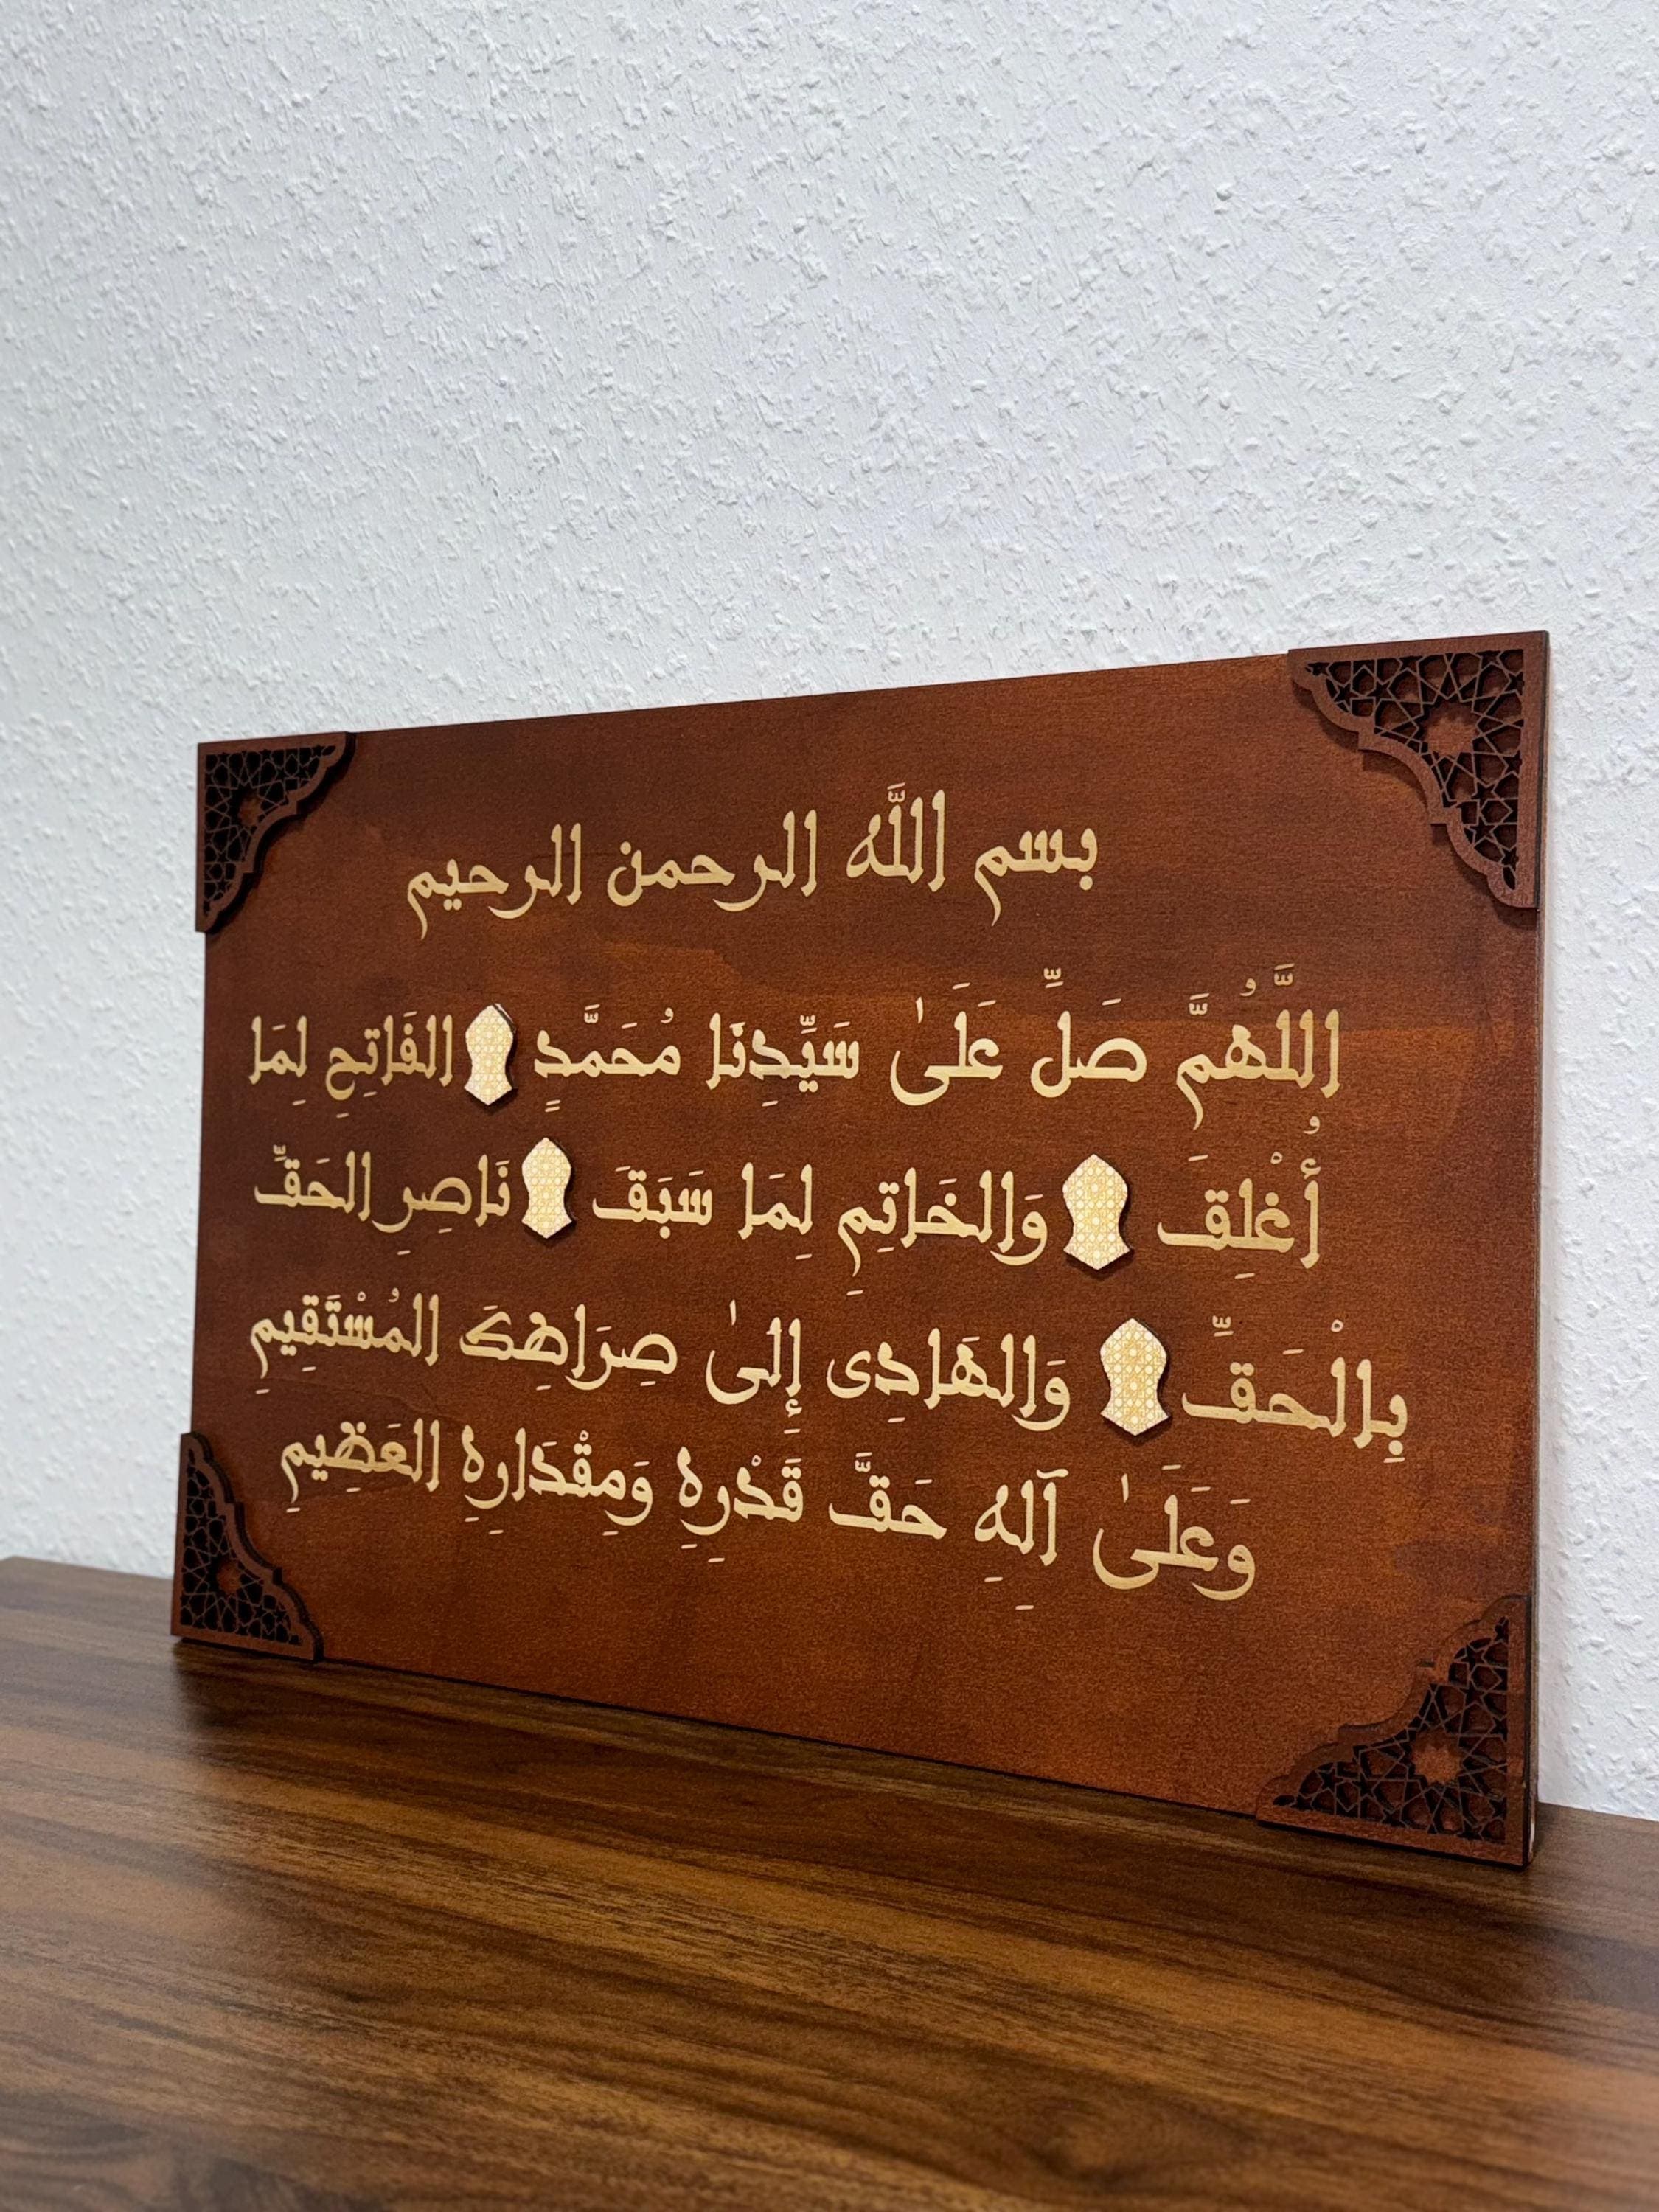 بسم اللَّه الرحمن الرحيم
اللَّهُمَّ صَلِّ عَلَىٰ سَيِّدِنَا مُحَمَّدٍ الفَاتِحِ لِمَا
أُغْلِقَ وَالخَاتِمِ لِمَا سَبَقَ نَاصِرِ الحَقِّ
بِالْحَقِّ وَالهَادِى إِلىٰ صِرَاهِكَ المُسْتَقِيمِ
وَعَلَىٰ آلهِ حَقَّ قَدْرِهِ وَمِقْدَارِهِ العَظِيمِ